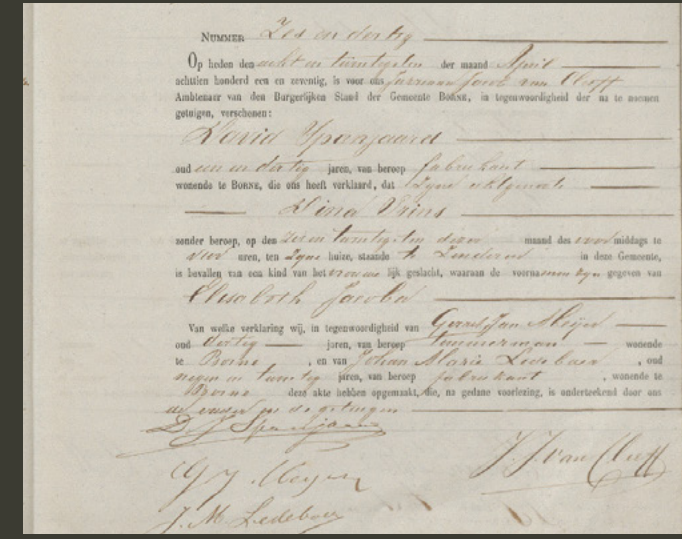 NUMMER Zes en dertig
Op heden den acht en twintigsten der maand April
achttien honderd een en zeventig, is voor ons Jurriaan Jacob van Cleeff
Ambtenaar van den Burgerlijken Stand der Gemeente BORNE, in tegenwoordigheid der na te noemen
getuigen, verschenen:
David Spanjaard
oud een en dertig jaren, van beroep fabrikant
wonende te BORNE, die ons heeft verklaard, dat zijne echtgenoote
Dina Prins
zonder beroep, op den zes en twintigsten dezer maand des voormiddags te
vier uren, ten zijne huize, staande te Zenderen in deze Gemeente,
is bevallen van een kind van het vrouwelijk geslacht, waaraan de voornamen zijn gegeven van
Elisabeth Jacoba
Van welke verklaring wij, in tegenwoordigheid van Gerrit Jan Meijer
oud dertig jaren, van beroep timmerman wonende
te Borne, en van Johan Marie Ledeboer, oud
negen en twintig jaren, van beroep fabrikant, wonende te
Borne deze akte hebben opgemaakt, die, na gedane voorlezing, is onderteekend door ons
de vader en de getuigen
D. J. Spanjaard
J. J. van Cleeff
G J Meijer
J. M. Ledeboer